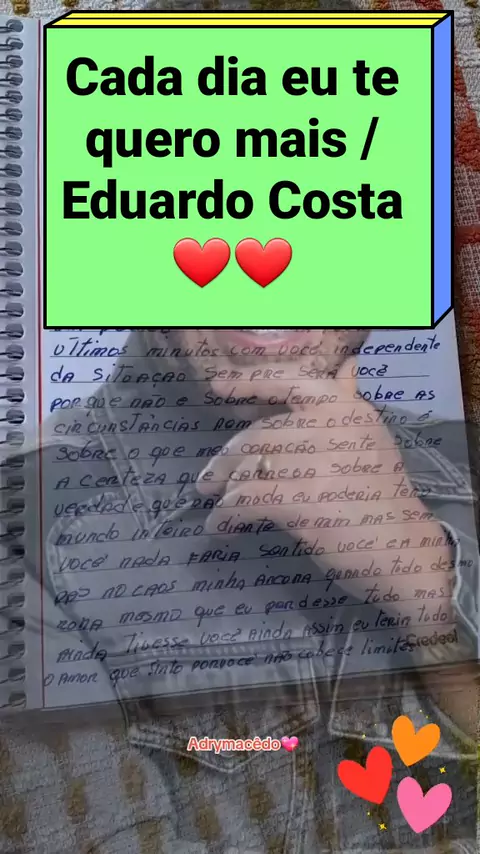 Cada dia eu te
quero mais /
Eduardo Costa
❤️❤️
últimos minutos com você independente
da situação sempre será você
porque não e sobre o tempo sobre as
circunstâncias nem sobre o destino é
sobre o que meu coração sente sobre
a certeza que carrega sobre a
verdade que não muda eu poderia ter o
mundo inteiro diante de mim mas sem
você nada faria sentido você é a minha
paz no caos minha âncora quando tudo desmo
rona mesmo que eu perdesse tudo mas
ainda tivesse você ainda assim eu teria tudo
o amor que sinto por você não cabe limites
Credeal
Adrymacêdo💖